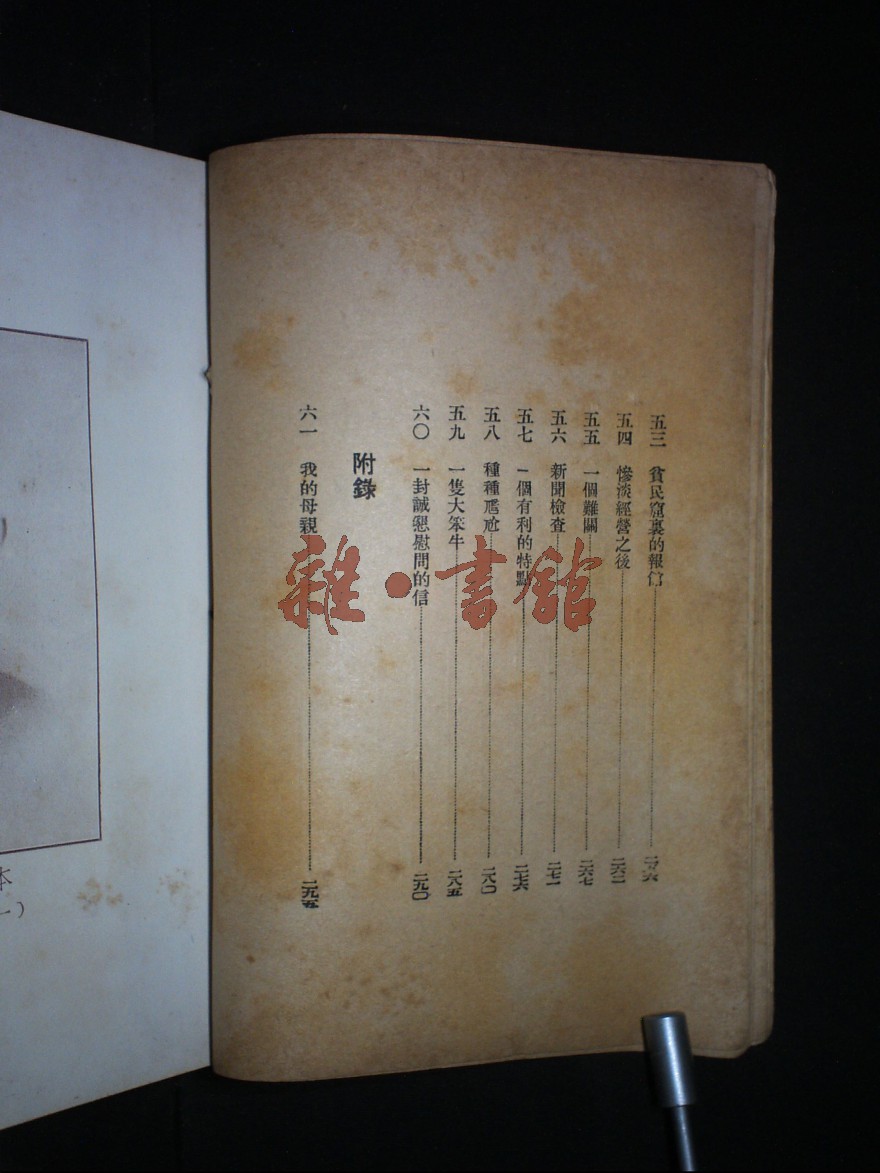 五三 貧民窟裏的報館
五四 慘淡經營之後 二六二
五五 一個難關 二六七
五六 新聞檢查 二七一
五七 一個有利的特點 二七六
五八 種種尷尬 二八〇
五九 一隻大笨牛 二八五
六〇 一封誠懇慰問的信 二九〇
附錄
六一 我的母親 二九五
雜·書館
本
一）